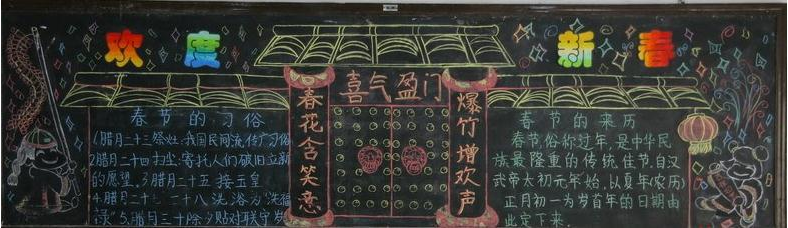 欢度
新春
喜气盈门
春花含笑意
爆竹增欢声
春节的习俗
1.腊月二十三祭灶:我国民间流传广习俗
2腊月二十四扫尘:寄托人们破旧立新
的愿望,3腊月二十五接玉皇
4.腊月二十七二十八洗浴为"洗福
禄"5.腊月三十除夕贴对联守岁
春节的来历
春节,俗称过年,是中华民
族最隆重的传统佳节.自汉
武帝太初元年始,以夏年(农历)
正月初一为岁首年的日期由
此定下来.